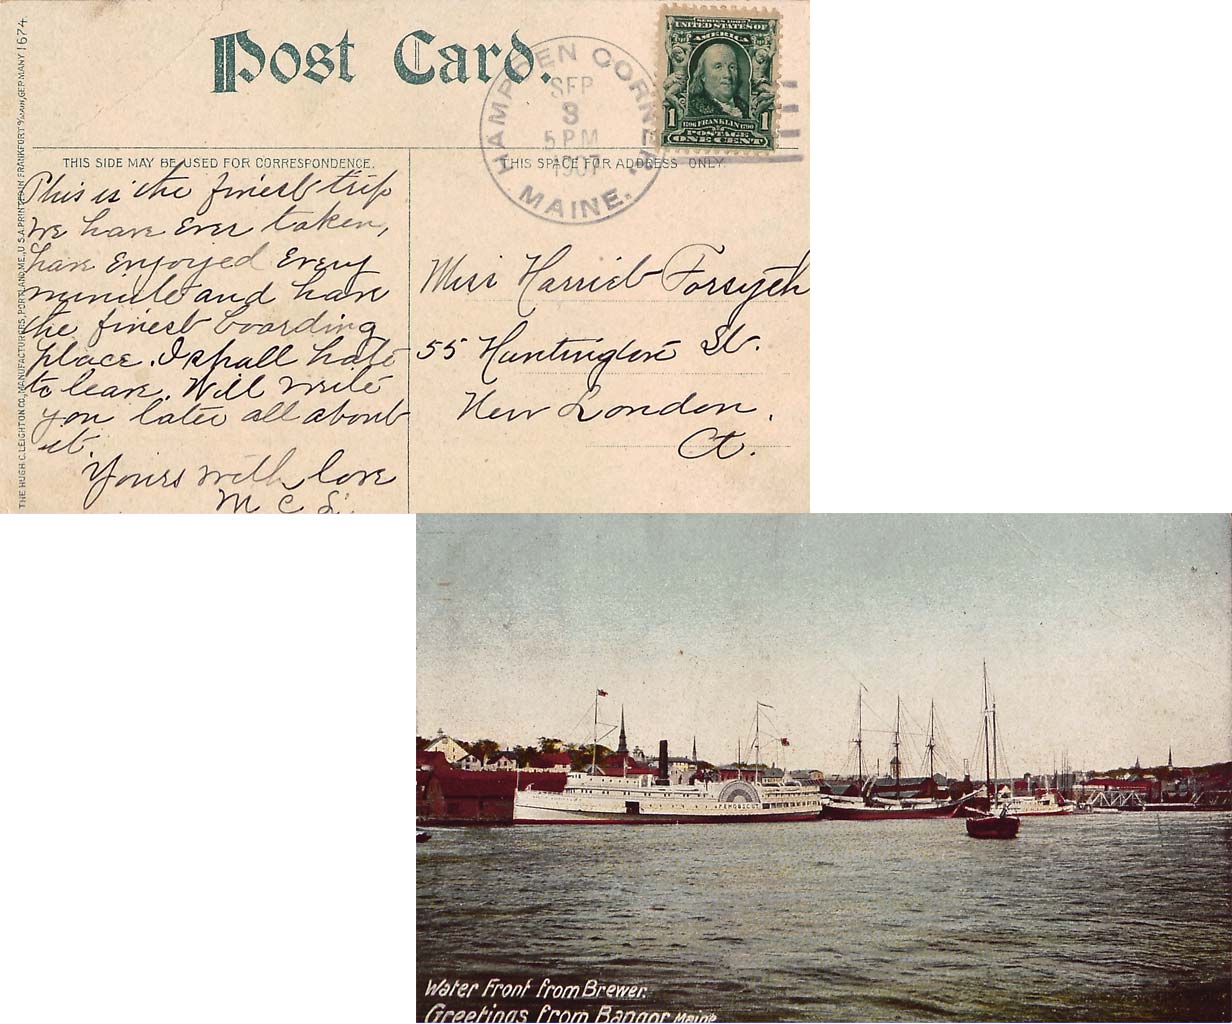 Post Card.
HAMPDEN CORNER.
SEP
3
5 PM
1907
MAINE.
SERIES 1902
UNITED STATES OF
AMERICA
1 1
1706 FRANKLIN 1790
POSTAGE
ONE CENT
THIS SIDE MAY BE USED FOR CORRESPONDENCE.
THIS SPACE FOR ADDRESS ONLY.
This is the finest trip
we have ever taken,
have enjoyed every
minute and have
the finest boarding
place. I shall hate
to leave. Will write
you later all about
it.
Yours with love
M C S.
Miss Harriet Forsyth
55 Huntington St.
New London.
Ct.
THE HUGH C. LEIGHTON CO., MANUFACTURERS, PORTLAND, ME., U.S.A. PRINTED IN FRANKFORT o/MAIN, GERMANY 1674
PENOBSCOT
Water Front from Brewer.
Greetings from Bangor Maine